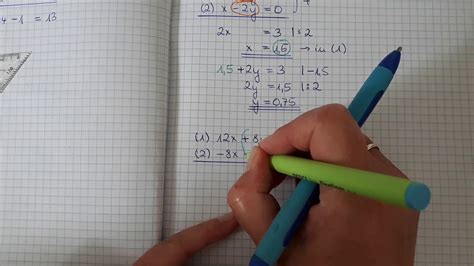 4 - 1 = 13
(2) x - 2y = 0
2x = 3 | : 2
x = 1,5 → in (1)
1,5 + 2y = 3 | - 1,5
2y = 1,5 | : 2
y = 0,75
(1) 12x + 8
(2) - 8x